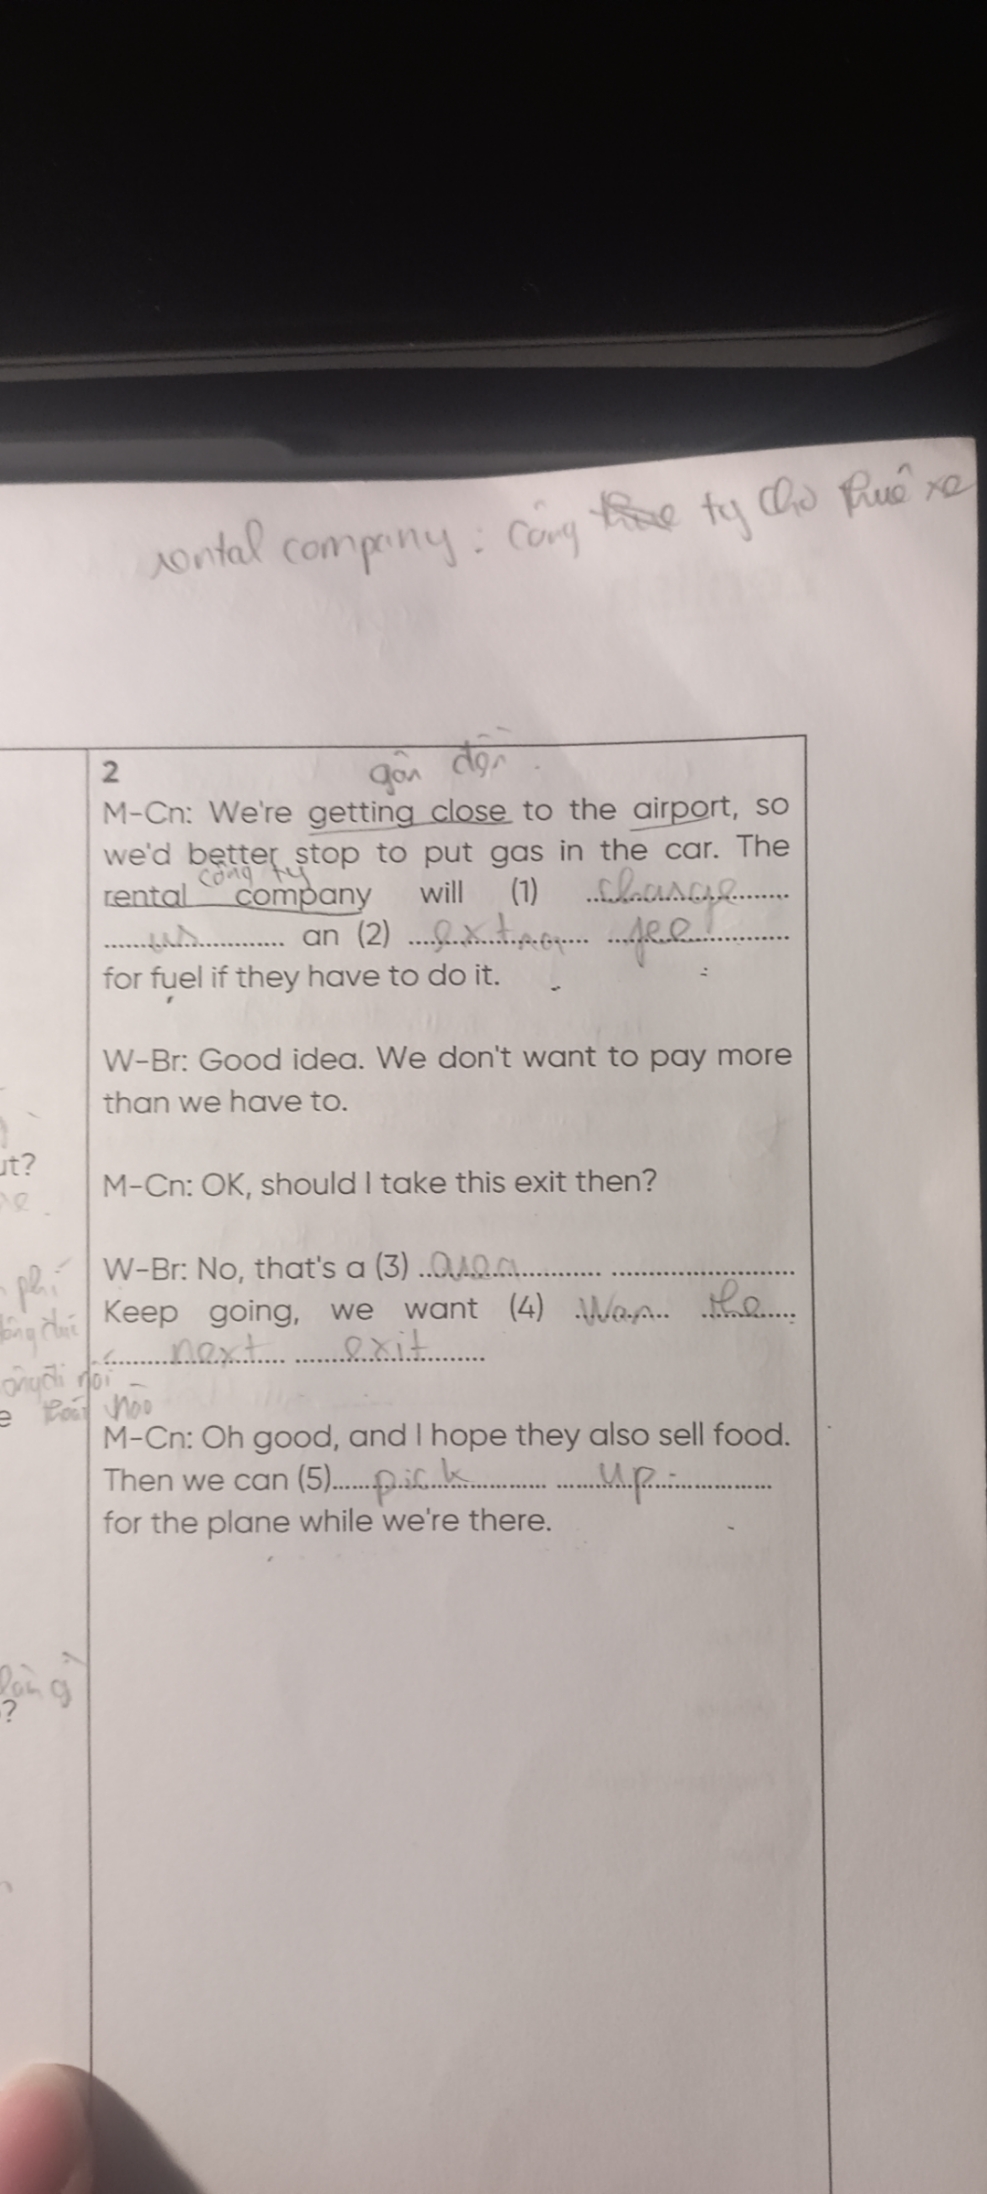 rental company : công ty cho thuê xe
2
gần đến
M-Cn: We're getting close to the airport, so
we'd better stop to put gas in the car. The
công ty
rental company will (1) charge
us an (2) extra fee
for fuel if they have to do it.
W-Br: Good idea. We don't want to pay more
than we have to.
ut?
M-Cn: OK, should I take this exit then?
W-Br: No, that's a (3) area
phí
Keep going, we want (4) Wan the
next exit
nơi
e nào
M-Cn: Oh good, and I hope they also sell food.
Then we can (5) pick up
for the plane while we're there.
?